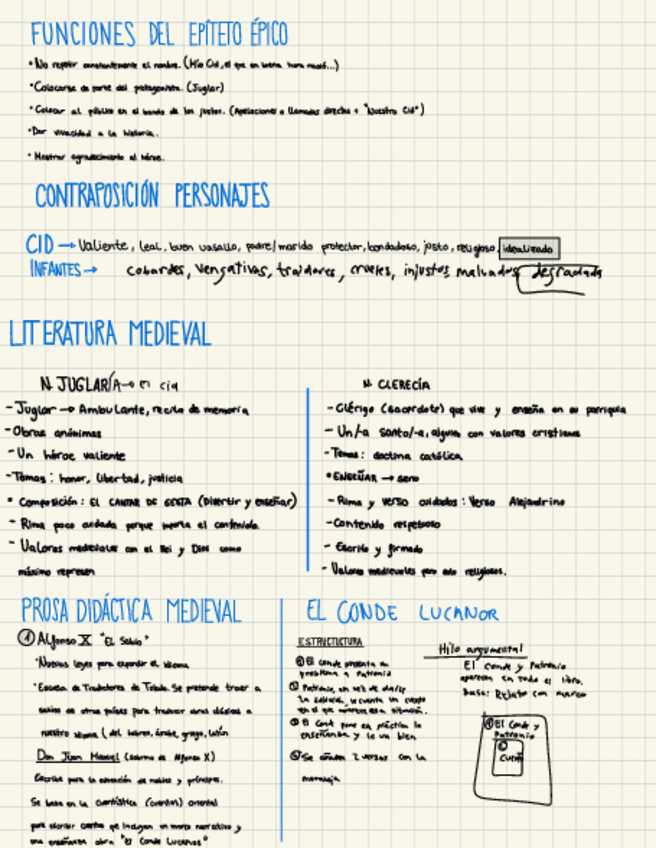 FUNCIONES DEL EPÍTETO ÉPICO
• No repetir constantemente el nombre. (Mío Cid, el que en buena hora nació...)
• Colocarse de parte del protagonista. (Juglar)
• Colocar al público en el bando de los justos. (Apelaciones o llamadas directas + "Nuestro Cid")
• Dar vivacidad a la historia.
• Mostrar agradecimiento al héroe.
CONTRAPOSICIÓN PERSONAJES
CID → Valiente, leal, buen vasallo, padre/marido protector, bondadoso, justo, religioso, idealizado
INFANTES → cobardes, vengativas, traidores, crueles, injustos, malvados degradada
LITERATURA MEDIEVAL
N. JUGLARÍA → el cid
- Juglar → Ambulante, recita de memoria
- Obras anónimas
- Un héroe valiente
- Temas: honor, libertad, justicia
• Composición: EL CANTAR DE GESTA (Divertir y enseñar)
- Rima poco cuidada porque importa el contenido.
- Valores medievales con el Rei y Dios como
máximo represen
N. CLERECÍA
- Clérigo (sacerdote) que vive y enseña en su parroquia
- Un/a santo/-a, alguien con valores cristianos
- Temas: doctrina católica
• ENSEÑAR → serio
- Rima y verso cuidados: Verso Alejandrino
- Contenido respetuoso
- Escrito y firmado
- Valores medievales pero más religiosos.
PROSA DIDÁCTICA MEDIEVAL
① Alfonso X "EL Sabio"
• Nuevas leyes para expandir el idioma
• Escuela de Traductores de Toledo. Se pretende traer a
sabios de otros países para traducir obras clásicas a
nuestro idioma (del hebreo, árabe, griego, latín
Don Juan Manuel (sobrino de Alfonso X)
Escribe para la educación de nobles y príncipes.
Se basa en la cuentística (cuentos) oriental
para escribir cuentos que incluyen un marco narrativo y
una enseñanza obra "El Conde Lucanor"
EL CONDE LUCANOR
ESTRUCTUCTURA
① El conde presenta un
problema a Patronio
② Patronio, en vez de darle
la solución, le cuenta un cuento
en el que aparece esa situación.
③ El Cond pone en práctica la
enseñanza y le va bien
④ Se añaden 2 versos con la
moraleja
Hilo argumental
El Conde y Patronio
aparecen en todo el libro.
Base: Relato con marco
① El Conde y
Patronio
② Cuento